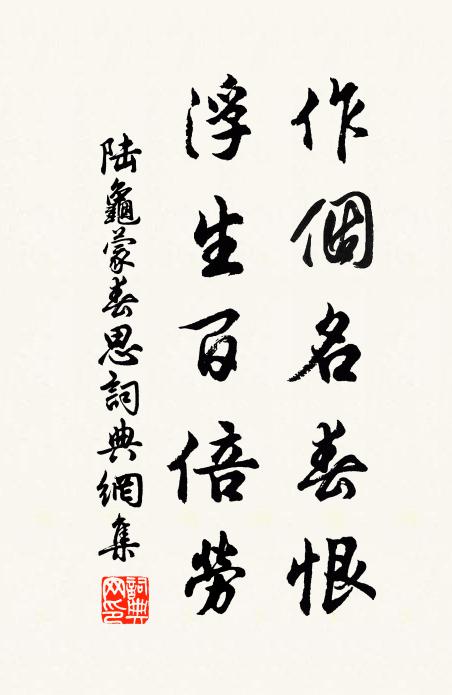 作個名春恨
浮生百倍勞
陸龜蒙春思詞典網集
詞典網印